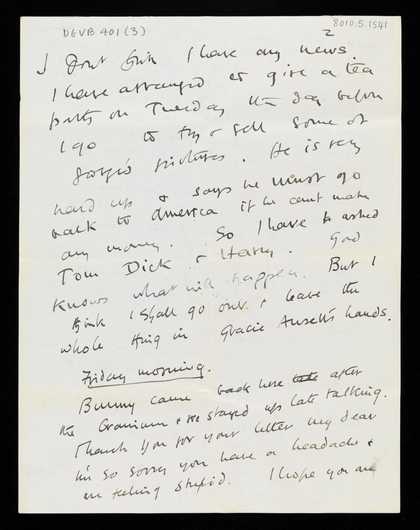 DGVB 401 (3)
8010.5.1541
2
I Dont think I have any news.
I have arranged to give a tea
party on Tuesday the day before
I go to try & sell some of
pictures. He is very
hard up & says he must go
back to America if he cant make
any money. So I have asked
Tom Dick & Harry. God
knows what will happen. But I
think I shall go out & leave the
whole thing in Gracie Ansell's hands.
Friday morning.
Bunny came back here after
the Cranium & we stayed up late talking.
Thank you for your letter my dear
I'm so sorry you have a headache &
are feeling stupid. I hope you are